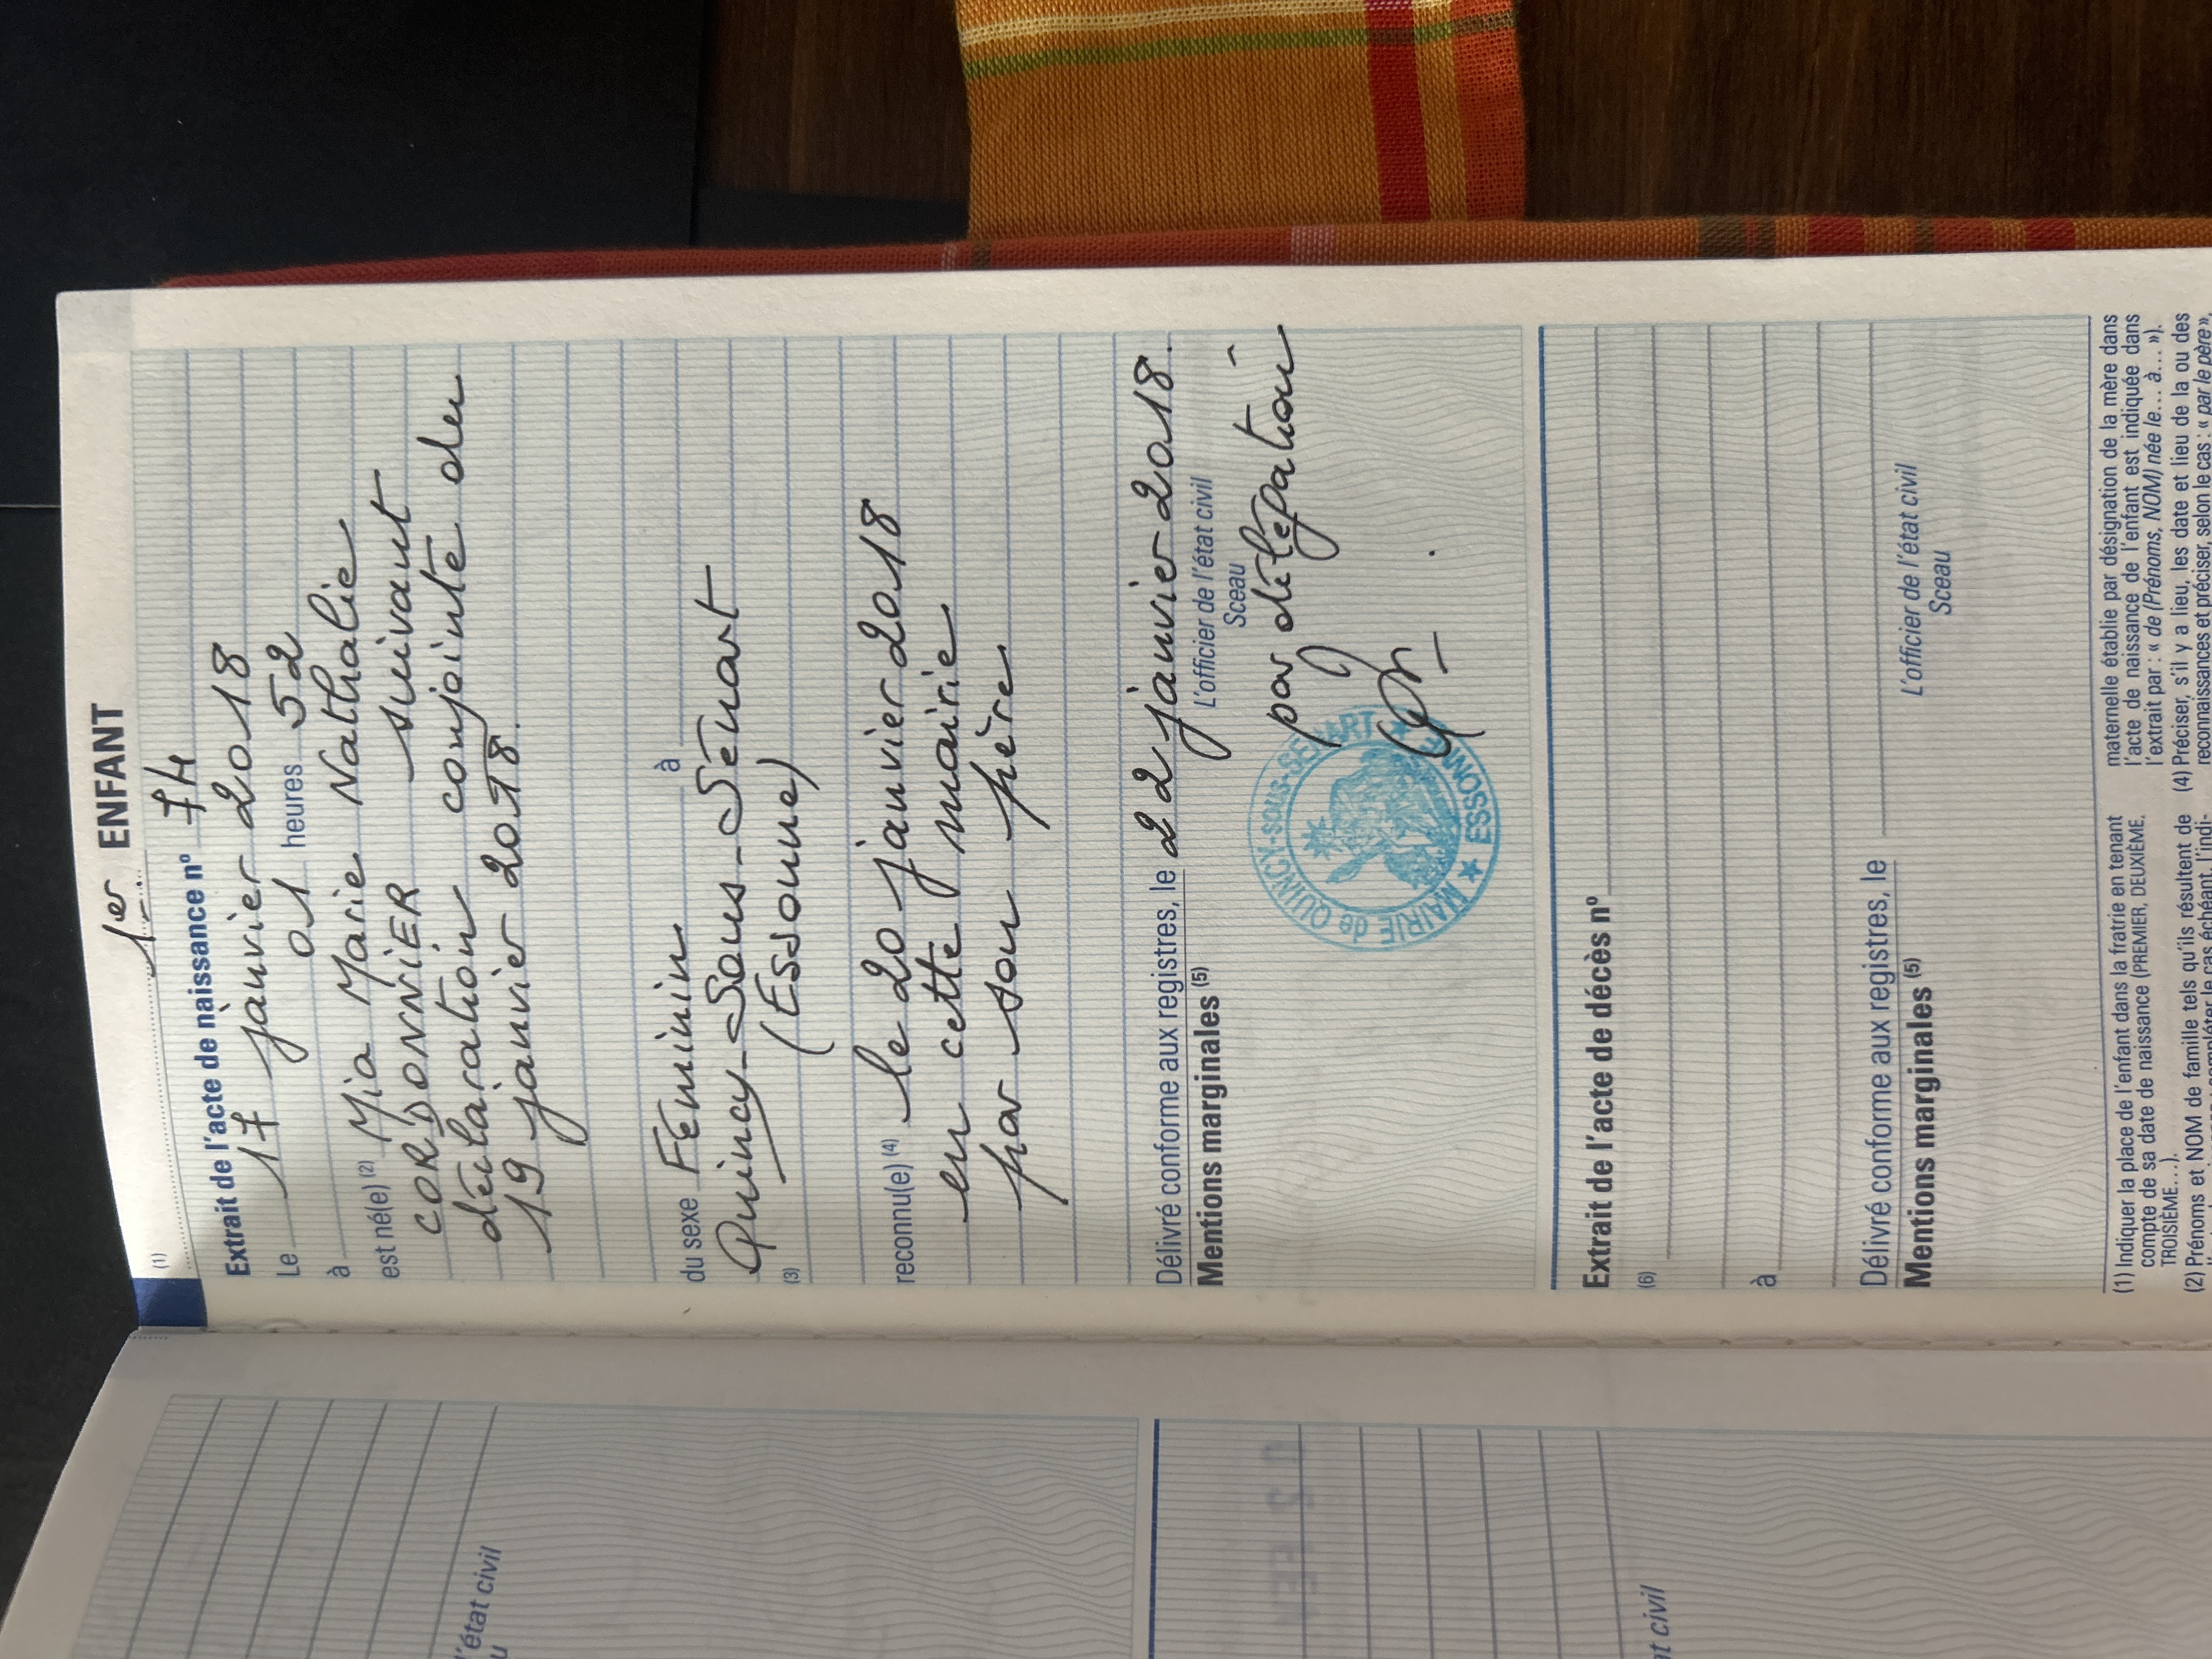 1er ENFANT
(1)
Extrait de l'acte de naissance nº 74
Le 17 janvier 2018
à 01 heures 52
est né(e) (2) Mia Marie Nathalie
CORDONNIER suivant
déclaration conjointe du
19 janvier 2018.
du sexe Féminin à
Quincy-Sous-Sénart
(3) (Essonne)
reconnu(e) (4) le 20 janvier 2018
en cette mairie
par son père
Délivré conforme aux registres, le 22 janvier 2018.
Mentions marginales (5)
L'officier de l'état civil
Sceau
par délégation
MAIRIE de QUINCY-SOUS-SENART
★ ESSONNE ★
Extrait de l'acte de décès nº
(6)
à
Délivré conforme aux registres, le
Mentions marginales (5)
L'officier de l'état civil
Sceau
(1) Indiquer la place de l'enfant dans la fratrie en tenant
compte de sa date de naissance (PREMIER, DEUXIÈME,
TROISIÈME…).
(2) Prénoms et NOM de famille tels qu'ils résultent de
maternelle établie par désignation de la mère dans
l'acte de naissance de l'enfant est indiquée dans
l'extrait par : « de (Prénoms, NOM) née le… à… »).
(4) Préciser, s'il y a lieu, les date et lieu de la ou des
reconnaissances et préciser, selon le cas : « par le père »,
l'état civil
at civil